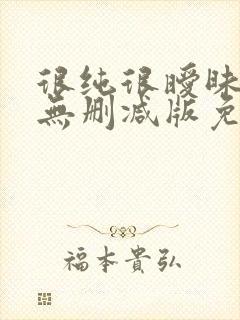 很纯很暧昧
無删减版免
福本貴弘